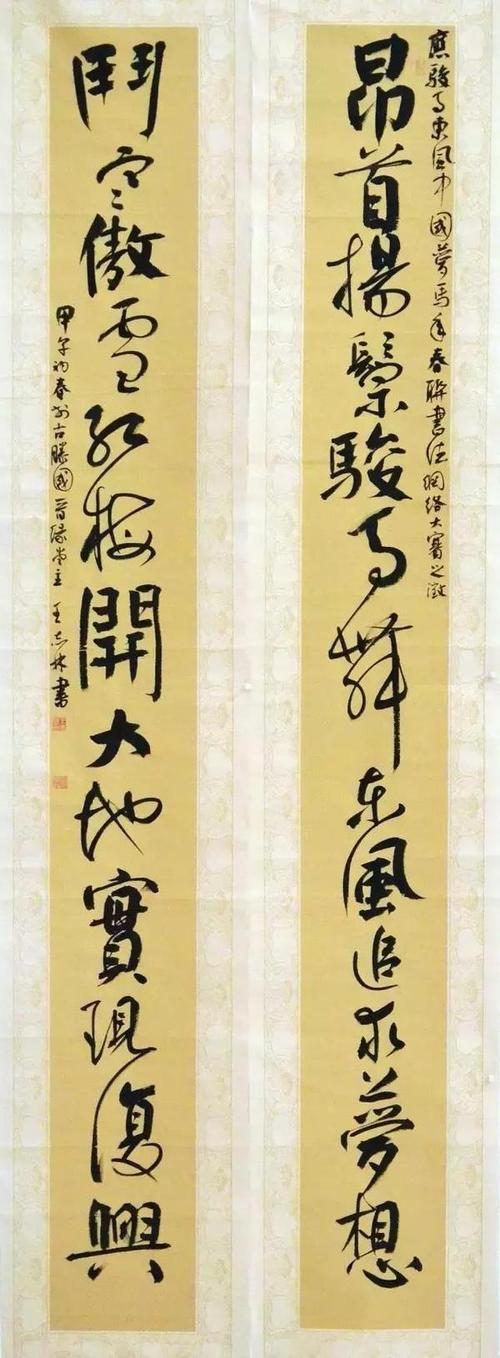 應駿馬東風中國夢馬年春聯書法網絡大賽之徵
昂首揚鬃駿馬舞東風追求夢想
鬥寒傲雪紅梅開大地實現復興
甲午初春於古滕國晉緣堂主王志林書